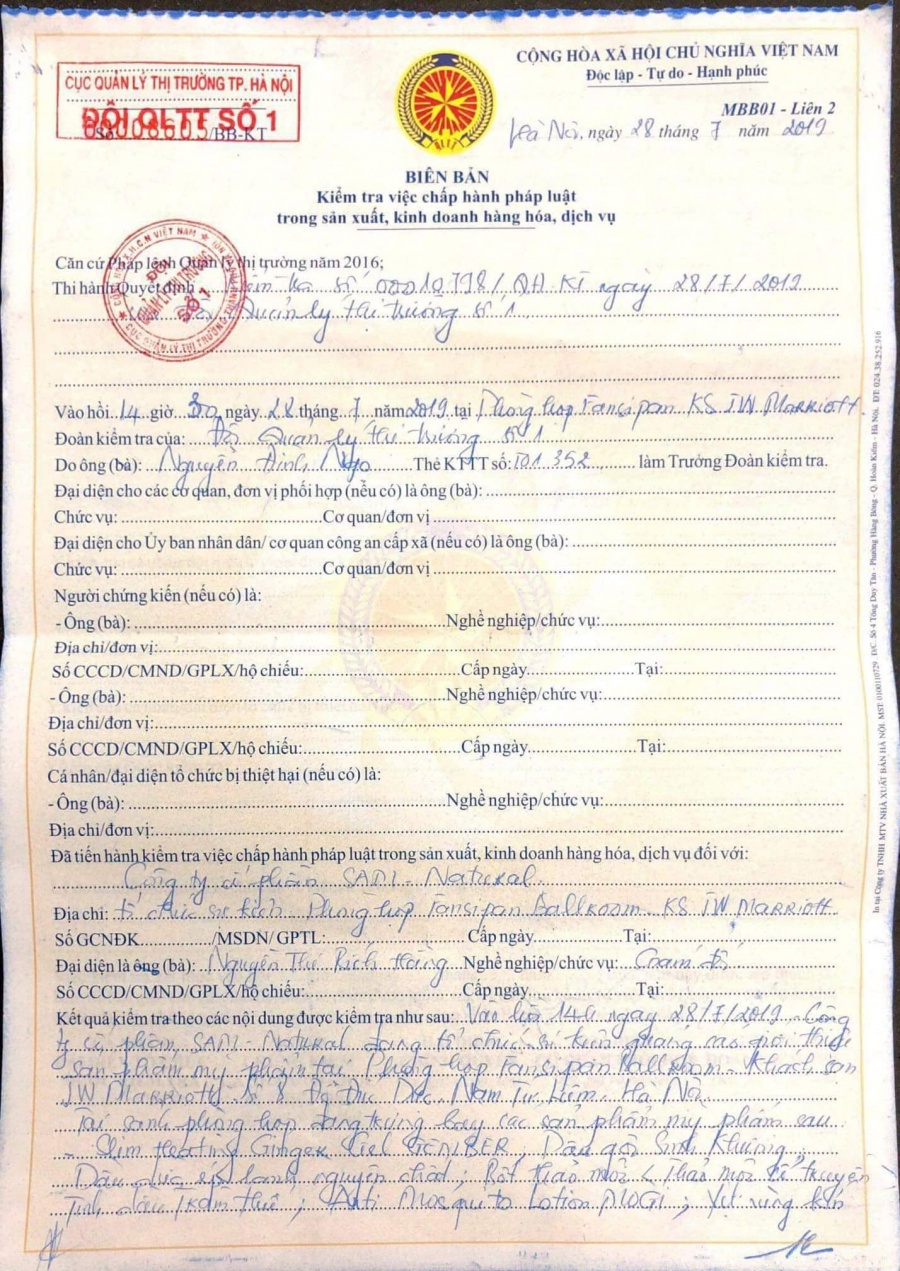 CỤC QUẢN LÝ THỊ TRƯỜNG TP. HÀ NỘI
ĐỘI QLTT SỐ 1
/BB-KT
CỘNG HÒA XÃ HỘI CHỦ NGHĨA VIỆT NAM
Độc lập - Tự do - Hạnh phúc
MBB01 - Liên 2
Hà Nội, ngày 28 tháng 7 năm 2019
BIÊN BẢN
Kiểm tra việc chấp hành pháp luật
trong sản xuất, kinh doanh hàng hóa, dịch vụ
Căn cứ Pháp lệnh Quản lý thị trường năm 2016;
Thi hành Quyết định kiểm tra số 00010798/QĐ-KT ngày 28/7/2019
Quản lý thị trường số 1
Vào hồi 14 giờ 30 ngày 28 tháng 7 năm 2019 tại Phòng họp Fansipan KS JW Marriott
Đoàn kiểm tra của: Đội Quản lý thị trường số 1
Do ông (bà): Nguyễn Đình Thẻ KTTT số: T01 352 làm Trưởng Đoàn kiểm tra.
Đại diện cho các cơ quan, đơn vị phối hợp (nếu có) là ông (bà):
Chức vụ: Cơ quan/đơn vị
Đại diện cho Ủy ban nhân dân/ cơ quan công an cấp xã (nếu có) là ông (bà):
Chức vụ: Cơ quan/đơn vị
Người chứng kiến (nếu có) là:
- Ông (bà): Nghề nghiệp/chức vụ:
Địa chỉ/đơn vị:
Số CCCD/CMND/GPLX/hộ chiếu: Cấp ngày Tại:
- Ông (bà): Nghề nghiệp/chức vụ:
Địa chỉ/đơn vị:
Số CCCD/CMND/GPLX/hộ chiếu: Cấp ngày Tại:
Cá nhân/đại diện tổ chức bị thiệt hại (nếu có) là:
- Ông (bà): Nghề nghiệp/chức vụ:
Địa chỉ/đơn vị:
Đã tiến hành kiểm tra việc chấp hành pháp luật trong sản xuất, kinh doanh hàng hóa, dịch vụ đối với:
Công ty cổ phần SADI-Natural
Địa chỉ: Tổ chức sự kiện Phòng họp Fansipan Ballroom - KS JW Marriott
Số GCNĐK /MSDN/ GPTL: Cấp ngày Tại:
Đại diện là ông (bà): Nguyễn Thị Bích Hằng Nghề nghiệp/chức vụ: Giám đốc
Số CCCD/CMND/GPLX/hộ chiếu: Cấp ngày Tại:
Kết quả kiểm tra theo các nội dung được kiểm tra như sau: Vào lúc 14h ngày 28/7/2019 Công
ty cổ phần SADI-Natural đang tổ chức sự kiện quảng cáo giới thiệu
sản phẩm mỹ phẩm tại Phòng họp Fansipan Ballroom - Khách sạn
JW Marriott số 8 Đỗ Đức Dục, Nam Từ Liêm - Hà Nội
Tại sảnh phòng họp đang trưng bày các sản phẩm mỹ phẩm sau
- Slim Heating Ginger Gel GENIBER, Dầu gội Sinh Khương,
Dầu dừa ép lạnh nguyên chất;
Tinh dầu tràm Huế; Anti Mosquito Lotion MOGI;
In tại Công ty TNHH MTV NHÀ XUẤT BẢN HÀ NỘI. MST: 0100110729. Đ/C: Số 4 Tống Duy Tân - Phường Hàng Bông - Q. Hoàn Kiếm - Hà Nội. ĐT: 024.38.252.916